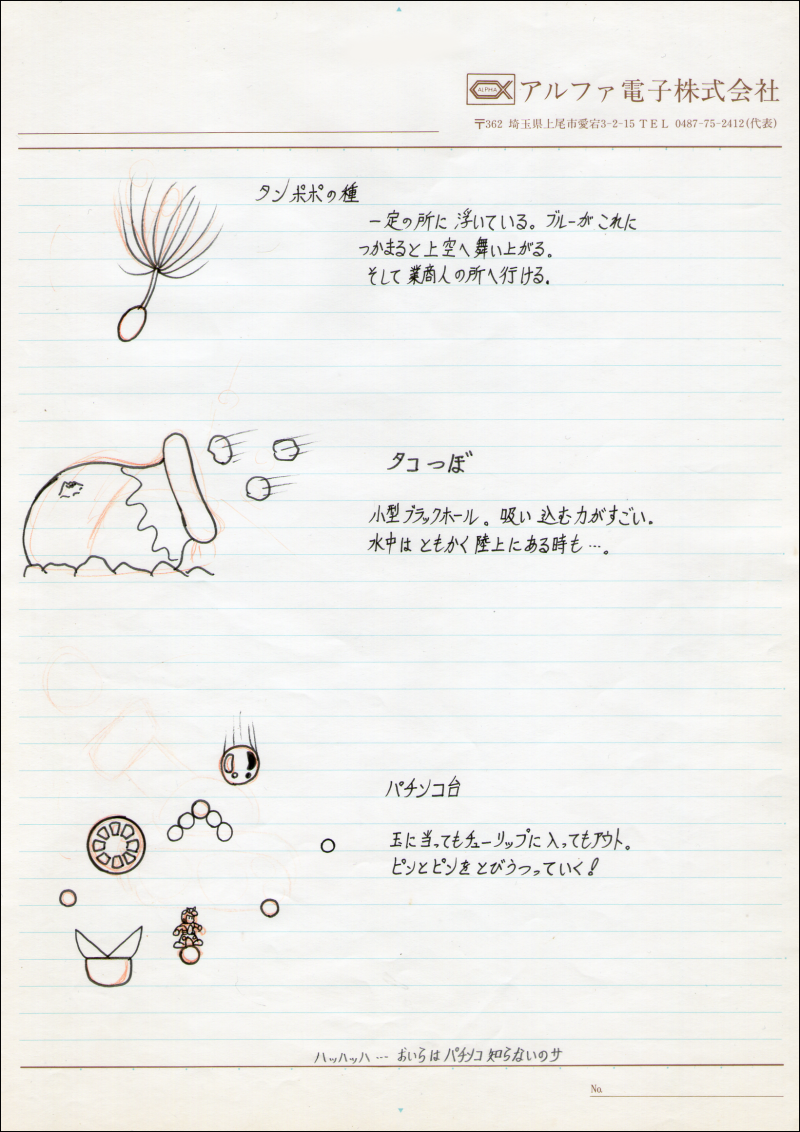 ALPHA アルファ電子株式会社
〒362 埼玉県上尾市愛宕3-2-15 TEL 0487-75-2412(代表)
タンポポの種
一定の所に浮いている。ブルーがこれに
つかまると上空へ舞い上がる。
そして業商人の所へ行ける。
タコつぼ
小型ブラックホール。吸い込む力がすごい。
水中はともかく陸上にある時も…。
パチンコ台
玉に当ってもチューリップに入ってもアウト。
ピンとピンをとびうつっていく!
ハッハッハ…おいらはパチンコ知らないのサ
No.